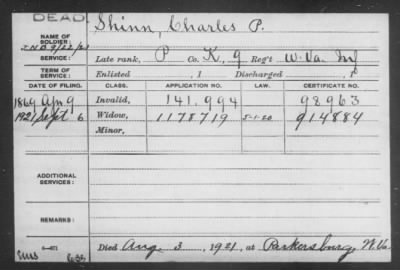 DEAD
NAME OF SOLDIER: Shinn, Charles P.
SERVICE: Late rank, P Co. K, 9 Reg't W. Va. Inf
TERM OF SERVICE: Enlisted , 1 Discharged , 1
DATE OF FILING. CLASS. APPLICATION NO. LAW. CERTIFICATE NO.
1869 Apr 9 Invalid, 141,994 98963
1921 Sept 6 Widow, 1178719 5-1-20 914884
Minor,
ADDITIONAL SERVICES:
REMARKS:
Died Aug. 3, 1921, at Parkersburg, W. Va.